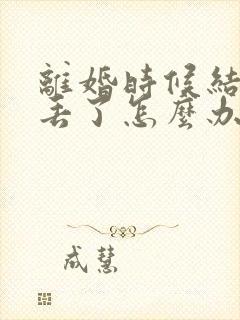 離婚時候結
丟了怎麼办
成慧